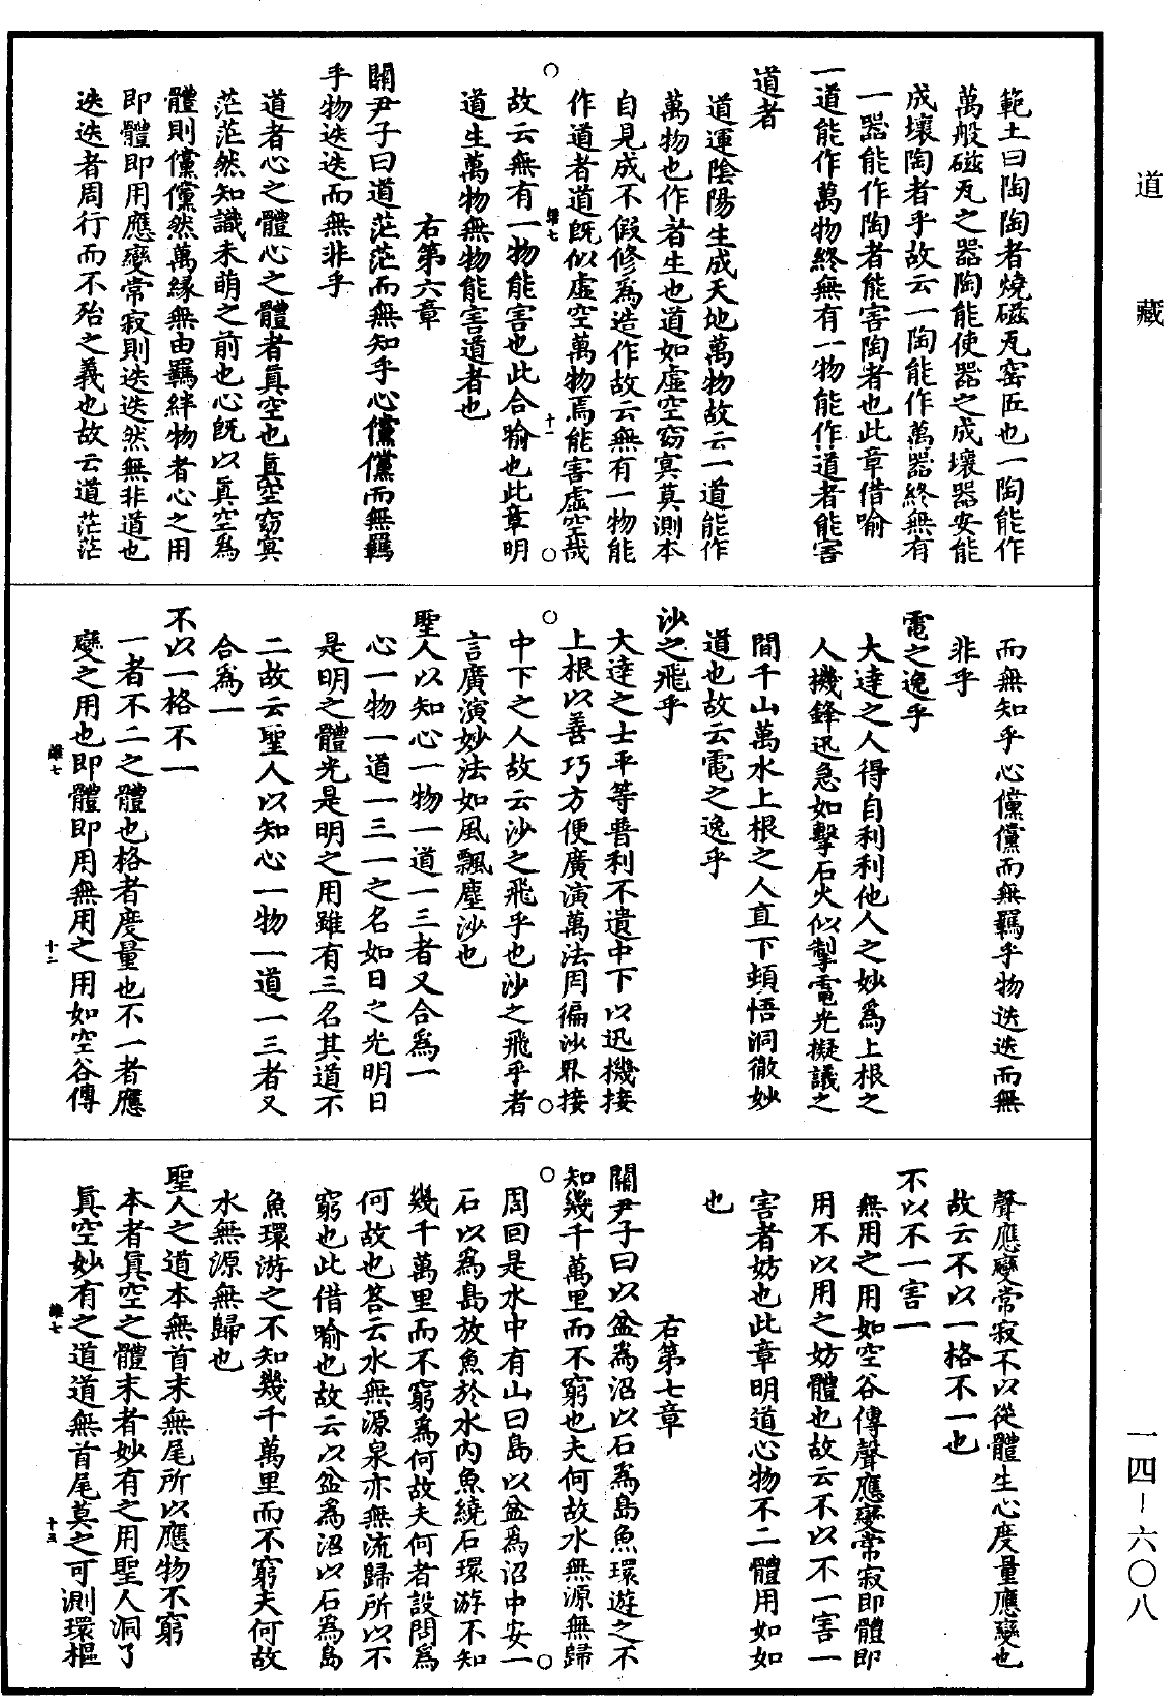 道藏
範土曰陶陶者燒磁瓦窑匠也一陶能作
萬般磁瓦之器陶能使器之成壞器安能
成壞陶者乎故云一陶能作萬器終無有
一器能作陶者能害陶者也此章借喻
一道能作萬物終無有一物能作道者能害
道者
道運陰陽生成天地萬物故云一道能作
萬物也作者生也道如虛空窈冥莫測本
自見成不假修為造作故云無有一物能
作道者道既似虛空萬物焉能害虛空哉
故云無有一物能害也此合喻也此章明
道生萬物無物能害道者也
右第六章
關尹子曰道茫茫而無知乎心儻儻而無羈
乎物迭迭而無非乎
道者心之體心之體者真空也真空窈冥
茫茫然知識未萌之前也心既以真空為
體則儻儻然萬緣無由羈絆物者心之用
即體即用應變常寂則迭迭然無非道也
迭迭者周行而不殆之義也故云道茫茫
而無知乎心儻儻而無羈乎物迭迭而無
非乎
電之逸乎
大達之人得自利利他人之妙為上根之
人機鋒迅急如擊石火似掣電光擬議之
間千山萬水上根之人直下頓悟洞徹妙
道也故云電之逸乎
沙之飛乎
大達之士平等普利不遺中下以迅機接
上根以善巧方便廣演萬法周徧沙界接
中下之人故云沙之飛乎也沙之飛乎者
言廣演妙法如風飄塵沙也
聖人以知心一物一道一三者又合為一
心一物一道一三一之名如日之光明日
是明之體光是明之用雖有三名其道不
二故云聖人以知心一物一道一三者又
合為一
不以一格不一
一者不二之體也格者度量也不一者應
變之用也即體即用無用之用如空谷傳
聲應變常寂不以從體生心度量應變也
故云不以一格不一也
不以不一害一
無用之用如空谷傳聲應變常寂即體即
用不以用之妨體也故云不以不一害一
害者妨也此章明道心物不二體用如如
也
右第七章
關尹子曰以盆為沼以石為島魚環遊之不
知幾千萬里而不窮也夫何故水無源無歸
周回是水中有山曰島以盆為沼中安一
石以為島放魚於水內魚繞石環游不知
幾千萬里而不窮為何故夫何者設問為
何故也答云水無源泉亦無流歸所以不
窮也此借喻也故云以盆為沼以石為島
魚環游之不知幾千萬里而不窮夫何故
水無源無歸也
聖人之道本無首末無尾所以應物不窮
本者真空之體末者妙有之用聖人洞了
真空妙有之道道無首尾莫之可測環樞
一四－六〇八